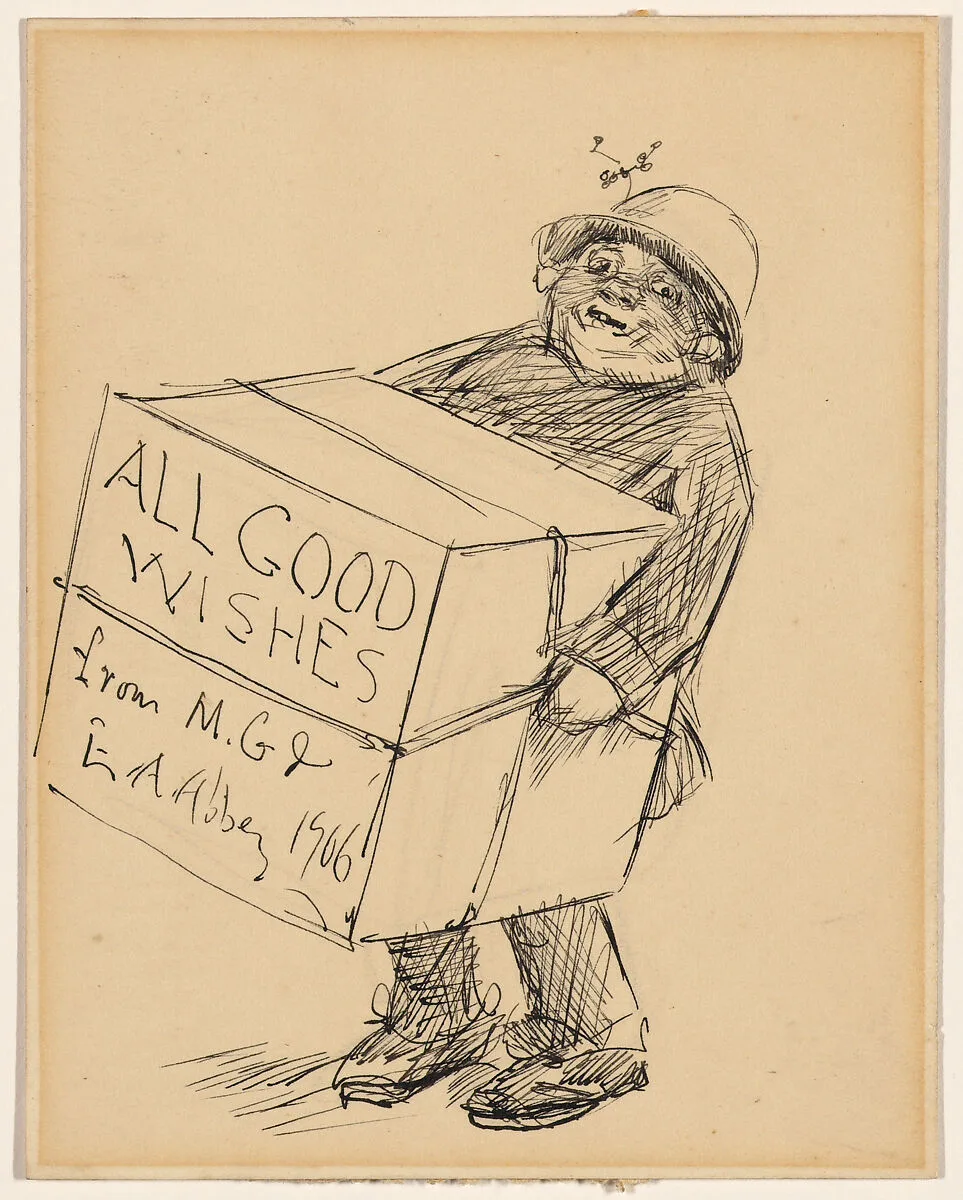 ALL GOOD
WISHES
from M.G &
E.A. Abbey 1906